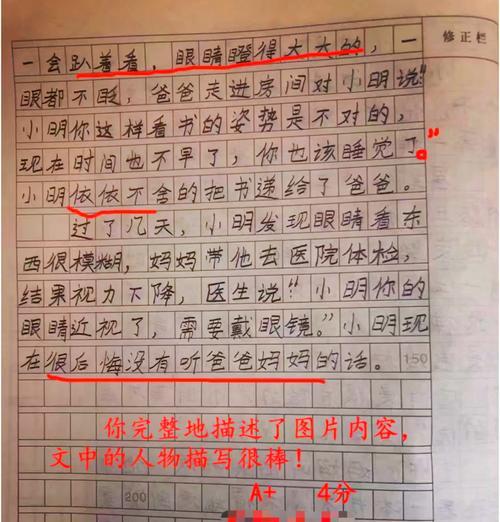 修正栏
一会趴着看，眼睛瞪得大大的，一
眼都不眨，爸爸走进房间对小明说“
小明你这样看书的姿势是不对的，
现在时间也不早了，你也该睡觉了。”
小明依依不舍的把书递给了爸爸。
过了几天，小明发现眼睛看东
西很模糊，妈妈带他去医院体检，
结果视力下降，医生说“小明你的
眼睛近视了，需要戴眼镜。”小明现
在很后悔没有听爸爸妈妈的话。
150
你完整地描述了图片内容，
文中的人物描写很棒！
200
A+ 4分